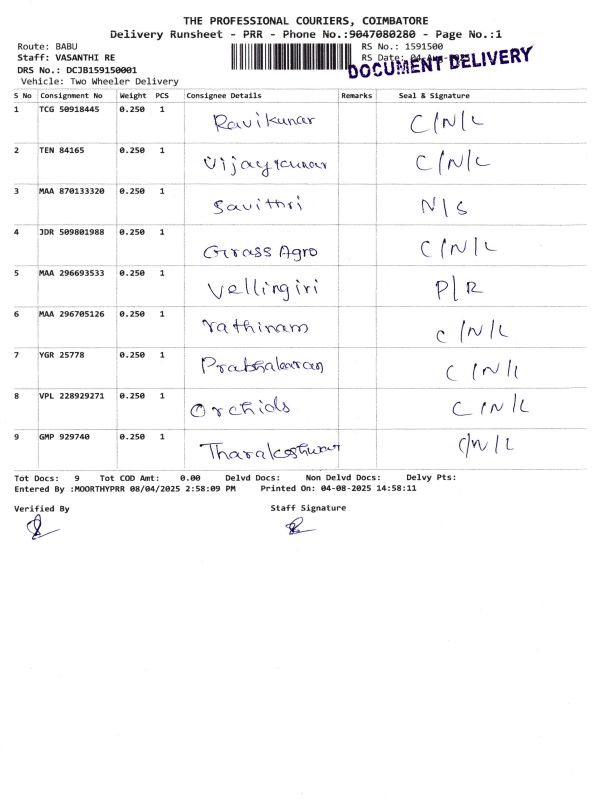 THE PROFESSIONAL COURIERS, COIMBATORE
Delivery Runsheet - PRR - Phone No.:9047080280 - Page No.:1
Route: BABU RS No.: 1591500
Staff: VASANTHI RE RS Date: 04-Aug-2025
DOCUMENT DELIVERY
DRS No.: DCJB159150001
Vehicle: Two Wheeler Delivery
S No Consignment No Weight PCS Consignee Details Remarks Seal & Signature
1 TCG 50918445 0.250 1 Ravikunar C/N/L
2 TEN 84165 0.250 1 Vijaykumar C/N/L
3 MAA 870133320 0.250 1 Savithri N/S
4 JDR 509801988 0.250 1 Grass Agro C/N/L
5 MAA 296693533 0.250 1 Vellingiri P/R
6 MAA 296705126 0.250 1 rathinam C/N/L
7 YGR 25778 0.250 1 Prabhakaran C/N/L
8 VPL 228929271 0.250 1 Orchids C/N/L
9 GMP 929740 0.250 1 C/N/L
Tot Docs: 9 Tot COD Amt: 0.00 Delvd Docs: Non Delvd Docs: Delvy Pts:
Entered By :MOORTHYPRR 08/04/2025 2:58:09 PM Printed On: 04-08-2025 14:58:11
Verified By Staff Signature